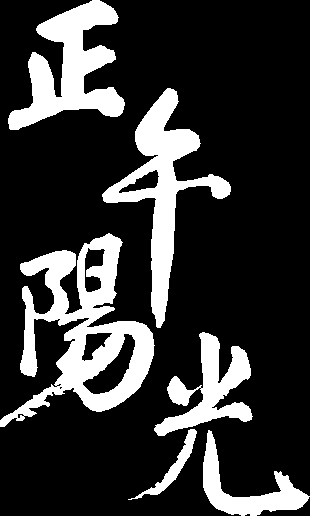 正午陽光